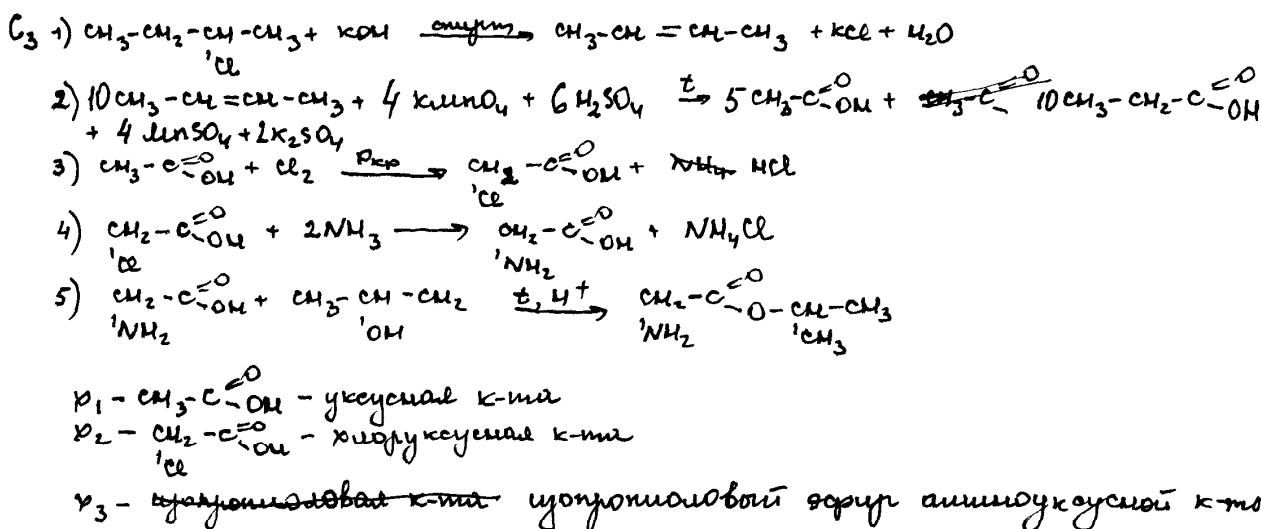 С3 1) CH3-CH2-CH-CH3 + KOH спирт→ CH3-CH=CH-CH3 + KCl + H2O
Cl
2) 10CH3-CH=CH-CH3 + 4KMnO4 + 6H2SO4 t→ 5CH3-C=O-OH + 10CH3-CH2-C=O-OH
+ 4MnSO4 + 2K2SO4
3) CH3-C=O-OH + Cl2 Ркр→ CH2-C=O-OH + HCl
Cl
4) CH2-C=O-OH + 2NH3 → CH2-C=O-OH + NH4Cl
Cl NH2
5) CH2-C=O-OH + CH3-CH-CH2 t, H+→ CH2-C=O-O-CH-CH3
NH2 OH NH2 CH3
X1 - CH3-C=O-OH - уксусная к-та
X2 - CH2-C=O-OH - хлоруксусная к-та
Cl
X3 - изопропиловый эфир аминоуксусной к-то